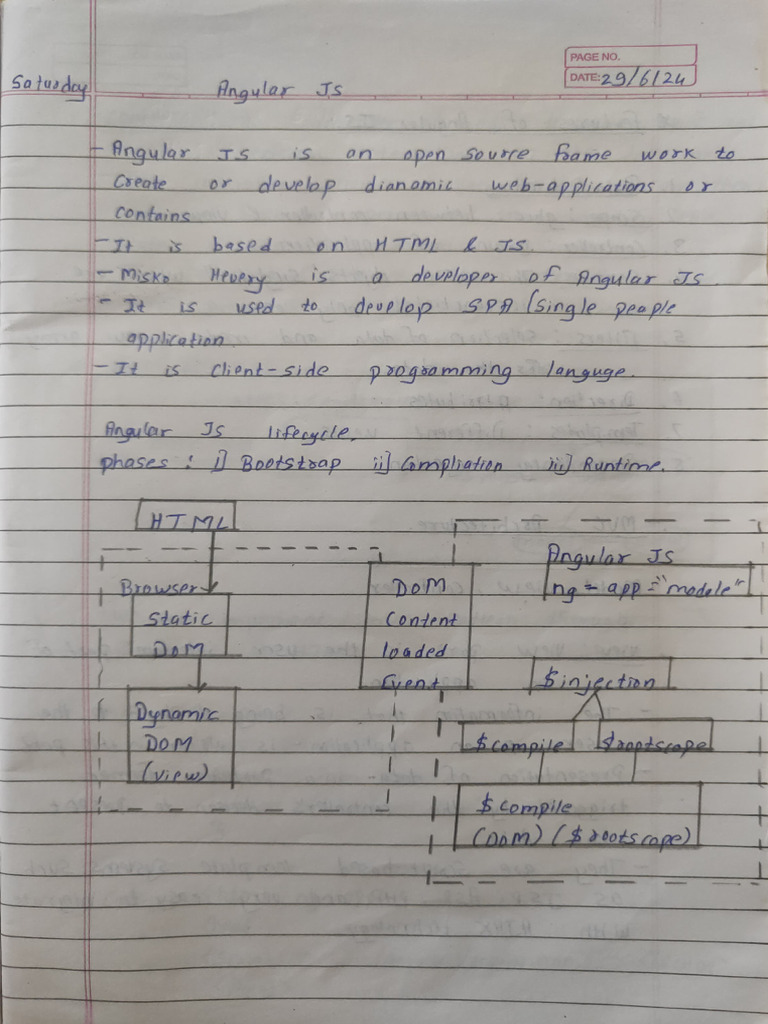 PAGE NO.
DATE: 29/6/24
Saturday
Angular JS
- Angular JS is an open source frame work to
Create or develop dianamic web-applications or
contains
- It is based on HTML & JS
- Misko Hevery is a developer of Angular JS.
- It is used to develop SPA (Single peaple
application
- It is client-side programming languge.
Angular JS lifecycle.
phases : i] Bootstrap ii] Compliation iii] Runtime.
HTML
Browser
Static
DOM
Dynamic
DOM
(view)
DOM
Content
loaded
Event
Angular JS
ng = app = "modele"
$injection
$compile
$rootscope
$compile
(DOM) ($rootscope)